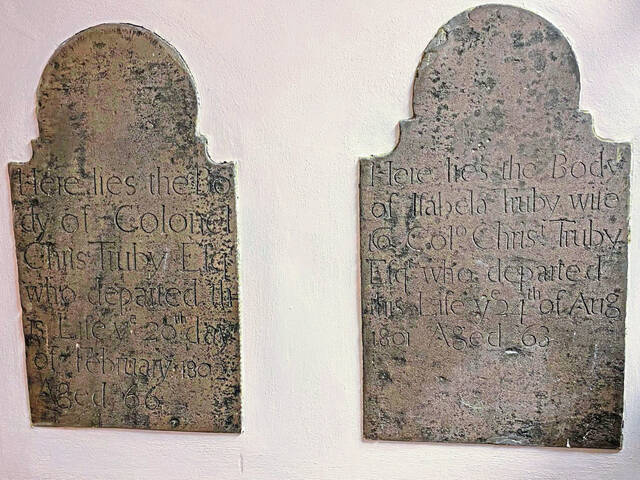 Here lies the Bo
dy of Colonel
Chris Truby Esq
who departed th
is Life yᵉ 25th day
of February 180
Aged 66
Here lies the Body
of Isabela Truby wife
to Colᵒ Chrisᵗ Truby
Esqʳ who departed
this Life yᵉ 24th of Aug
1801 Aged 63